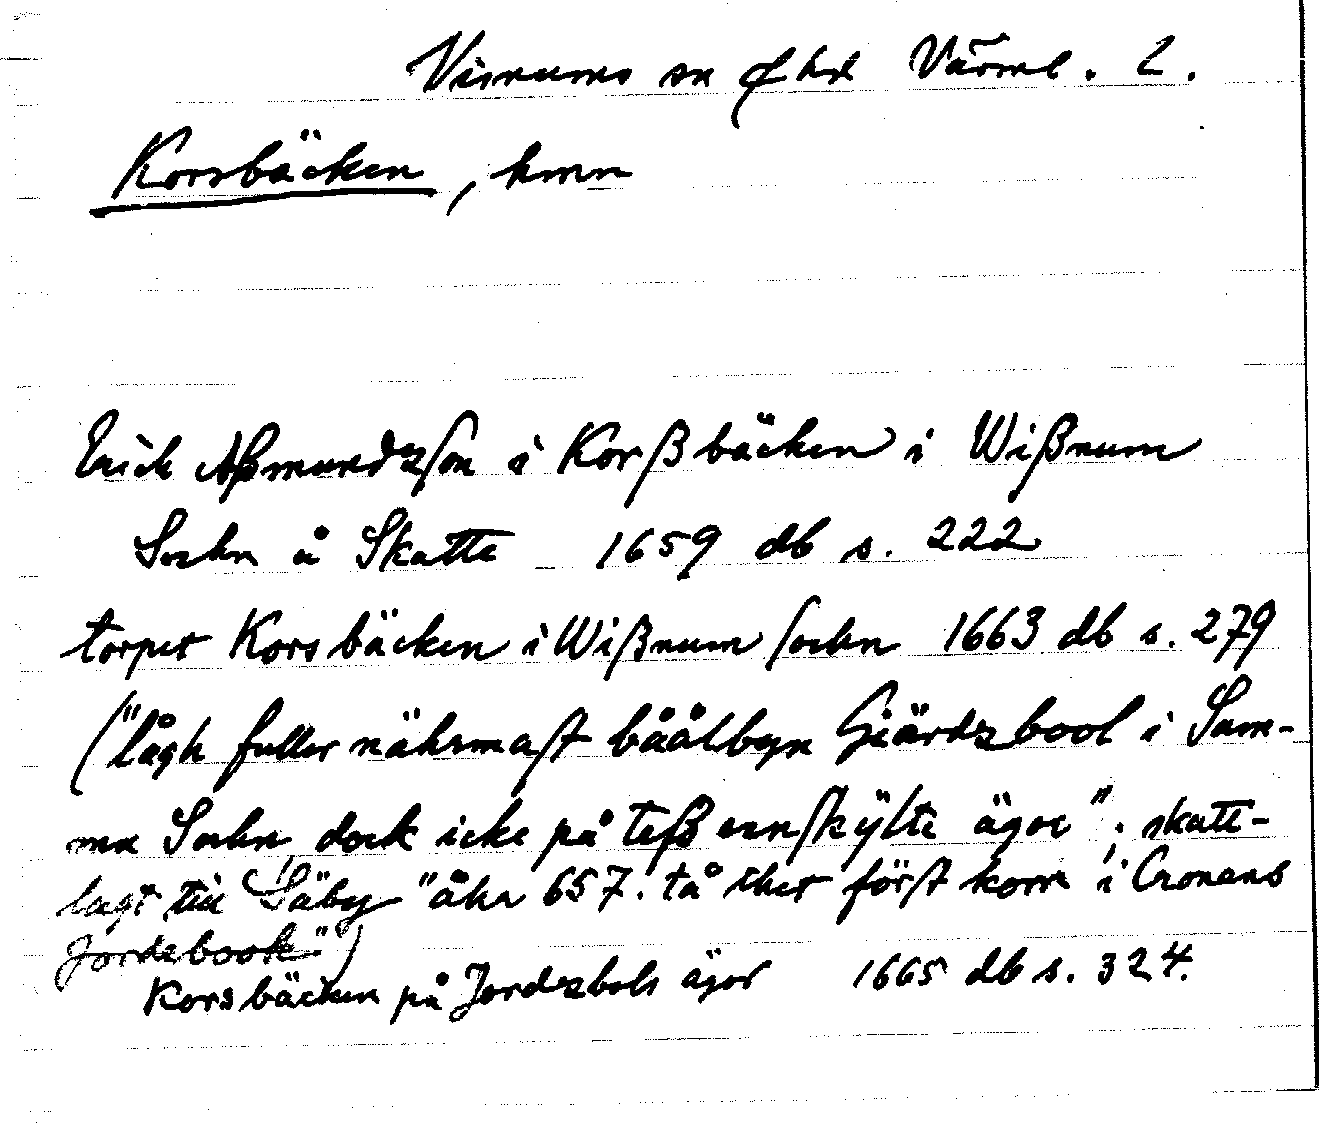 Visnums sn ɸ hd Värml. l.
Korsbäcken, hmn
Erich Aßmundzson i Korßbäcken i Wißnum
Sochn å Skatte 1659 db s. 222
torpet Korsbäcken i Wißnum sochn 1663 db s. 279
("lågh fuller nährmast båålbyn Giärdzbool i Sam-
ma Sochn dock icke på teß eenskÿlte ägor", skatt-
lagt till Säby "åhr 657. tå thet först kom i Cronans
Jordebook")
Korsbäcken på Jordzbols ägor 1665 db s. 324.